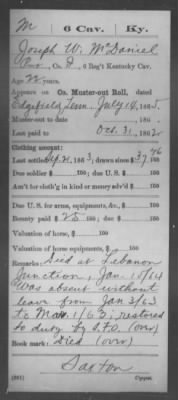 M 6 Cav. Ky.
Joseph W. McDaniel
Co. D, 6 Reg't Kentucky Cav.
Age 22 years.
Appears on Co. Muster-out Roll, dated
Edgefield, Tenn. July 14, 1865.
Muster-out to date 186 .
Last paid to Oct. 31, 1862.
Clothing account:
Last settled Sep. 21, 1863; drawn since $37 46/100
Due soldier $ 100; due U. S. $ 100
Am't for cloth'g in kind or money adv'd $ 100
Due U. S. for arms, equipments, &c., $ 100
Bounty paid $ 25 100; due $ 100
Valuation of horse, $ 100
Valuation of horse equipments, $ 100
Remarks: Died at Lebanon
Junction, Jan 15/64
Was absent without
leave from Jan 3/63
to Mar 1/63; restored
to duty by S.F.O. (over)
Book mark: Died (over)
Saxton
(861) Copyist.